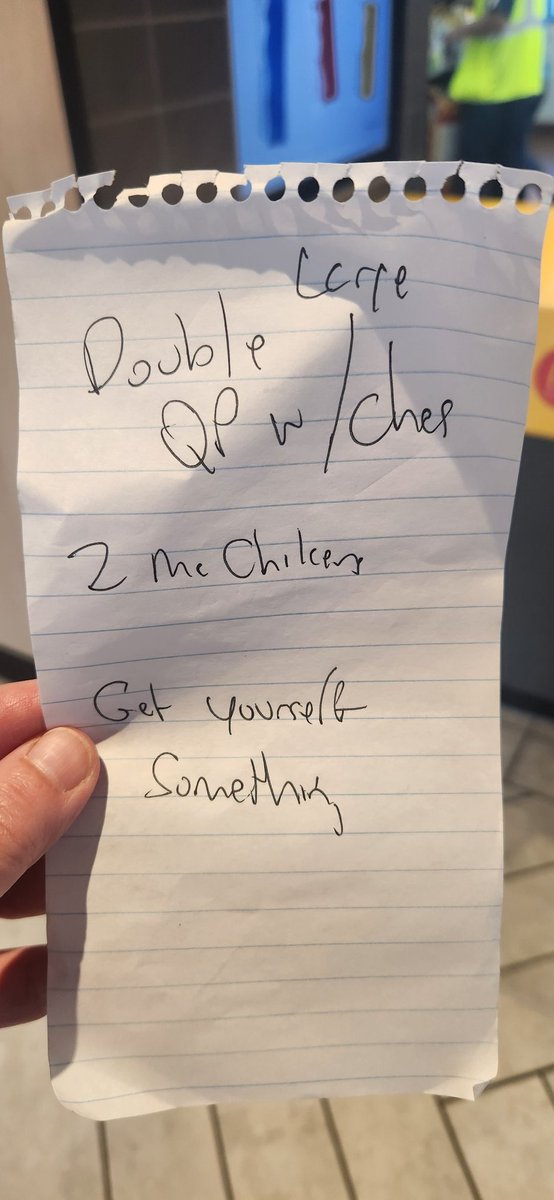 Large
Double
QP w/ches
2 Mc Chikens
Get yourself
Something